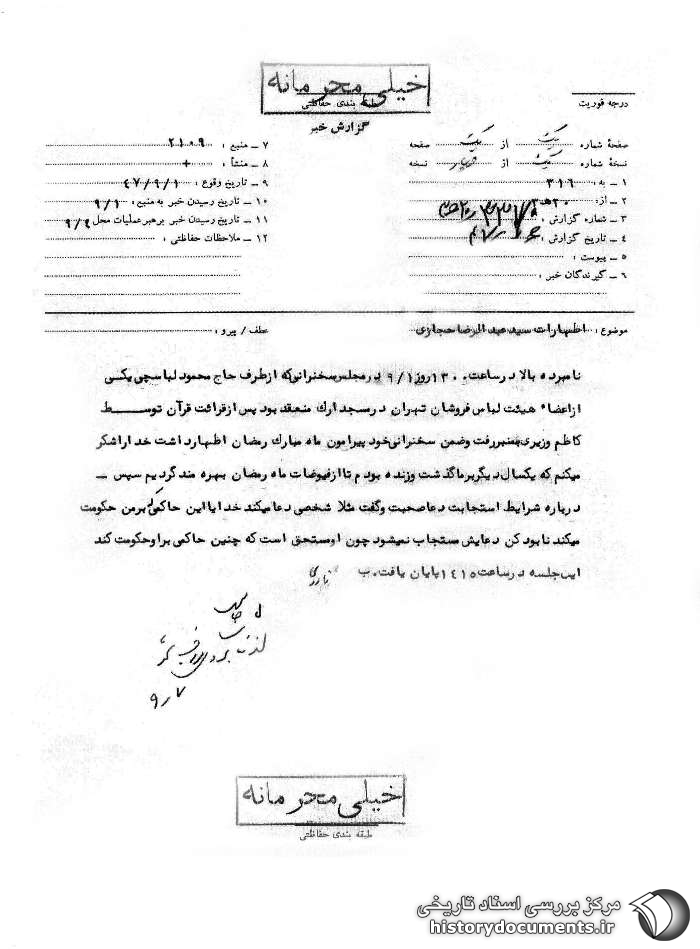 خیلی محرمانه
طبقه بندی حفاظتی
درجه فوریت
گزارش خبر
صفحهٔ شماره یک از یک صفحه
نسخهٔ شماره یک از چهار نسخه
۱ ـ به : ۳۱۶
۲ ـ از : ۲۰ ه‍ ۳
۳ ـ شماره گزارش :
۴ ـ تاریخ گزارش :
۵ ـ پیوست :
۶ ـ گیرندگان خبر :
۷ ـ منبع : ۲۱۰۹
۸ ـ منشأ : +
۹ ـ تاریخ وقوع : ۴۷/۹/۱
۱۰ ـ تاریخ رسیدن خبر به منبع : ۹/۱
۱۱ ـ تاریخ رسیدن خبر برهبر عملیات محل ۹/۲
۱۲ ـ ملاحظات حفاظتی :
موضوع : اظهارات سید عبدالرضا حجازی
عطف / پیرو :
نامبرده بالا در ساعت ۱۳۰۰ روز ۹/۱ در مجلس سخنرانی که از طرف حاج محمود لباسچی یکی
از اعضاء هیئت لباس فروشان تهران در مسجد ارك منعقد بود پس از قرائت قرآن توسط
کاظم وزیری بمنبر رفت وضمن سخنرانی خود پیرامون ماه مبارك رمضان اظهار داشت خدا را شکر
میکنم که یکسال دیگر بر ما گذشت وزنده بودم تا از فیوضات ماه رمضان بهره مند گردیم سپس ـ
درباره شرایط استجابت دعا صحبت وگفت مثلا شخصی دعا میکند خدایا این حاکمی که بر من حکومت
میکند نابود کن دعایش مستجاب نمیشود چون او مستحق است که چنین حاکمی بر او حکومت کند
این جلسه در ساعت ۱۴۱۵ پایان یافت . ب
۹/۷
خیلی محرمانه
طبقه بندی حفاظتی
مرکز بررسی اسناد تاریخی
historydocuments.ir